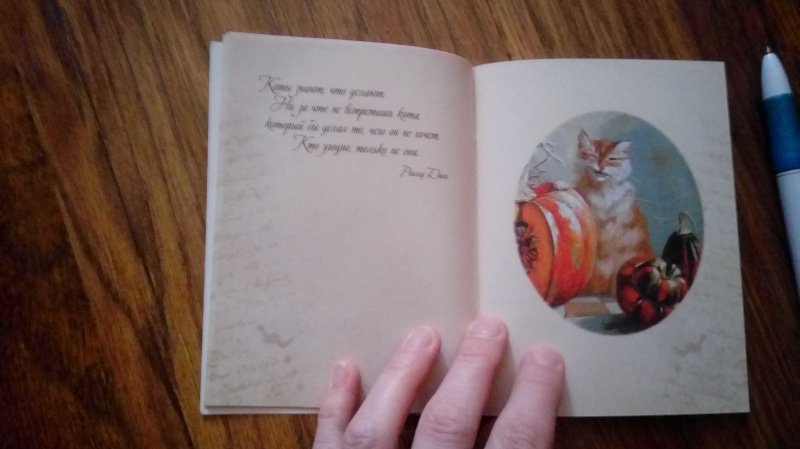 Коты знают, что делают.
Ни за что не встретишь кота,
который бы делал то, чего он не хочет.
Кто угодно, только не они.
Роальд Даль